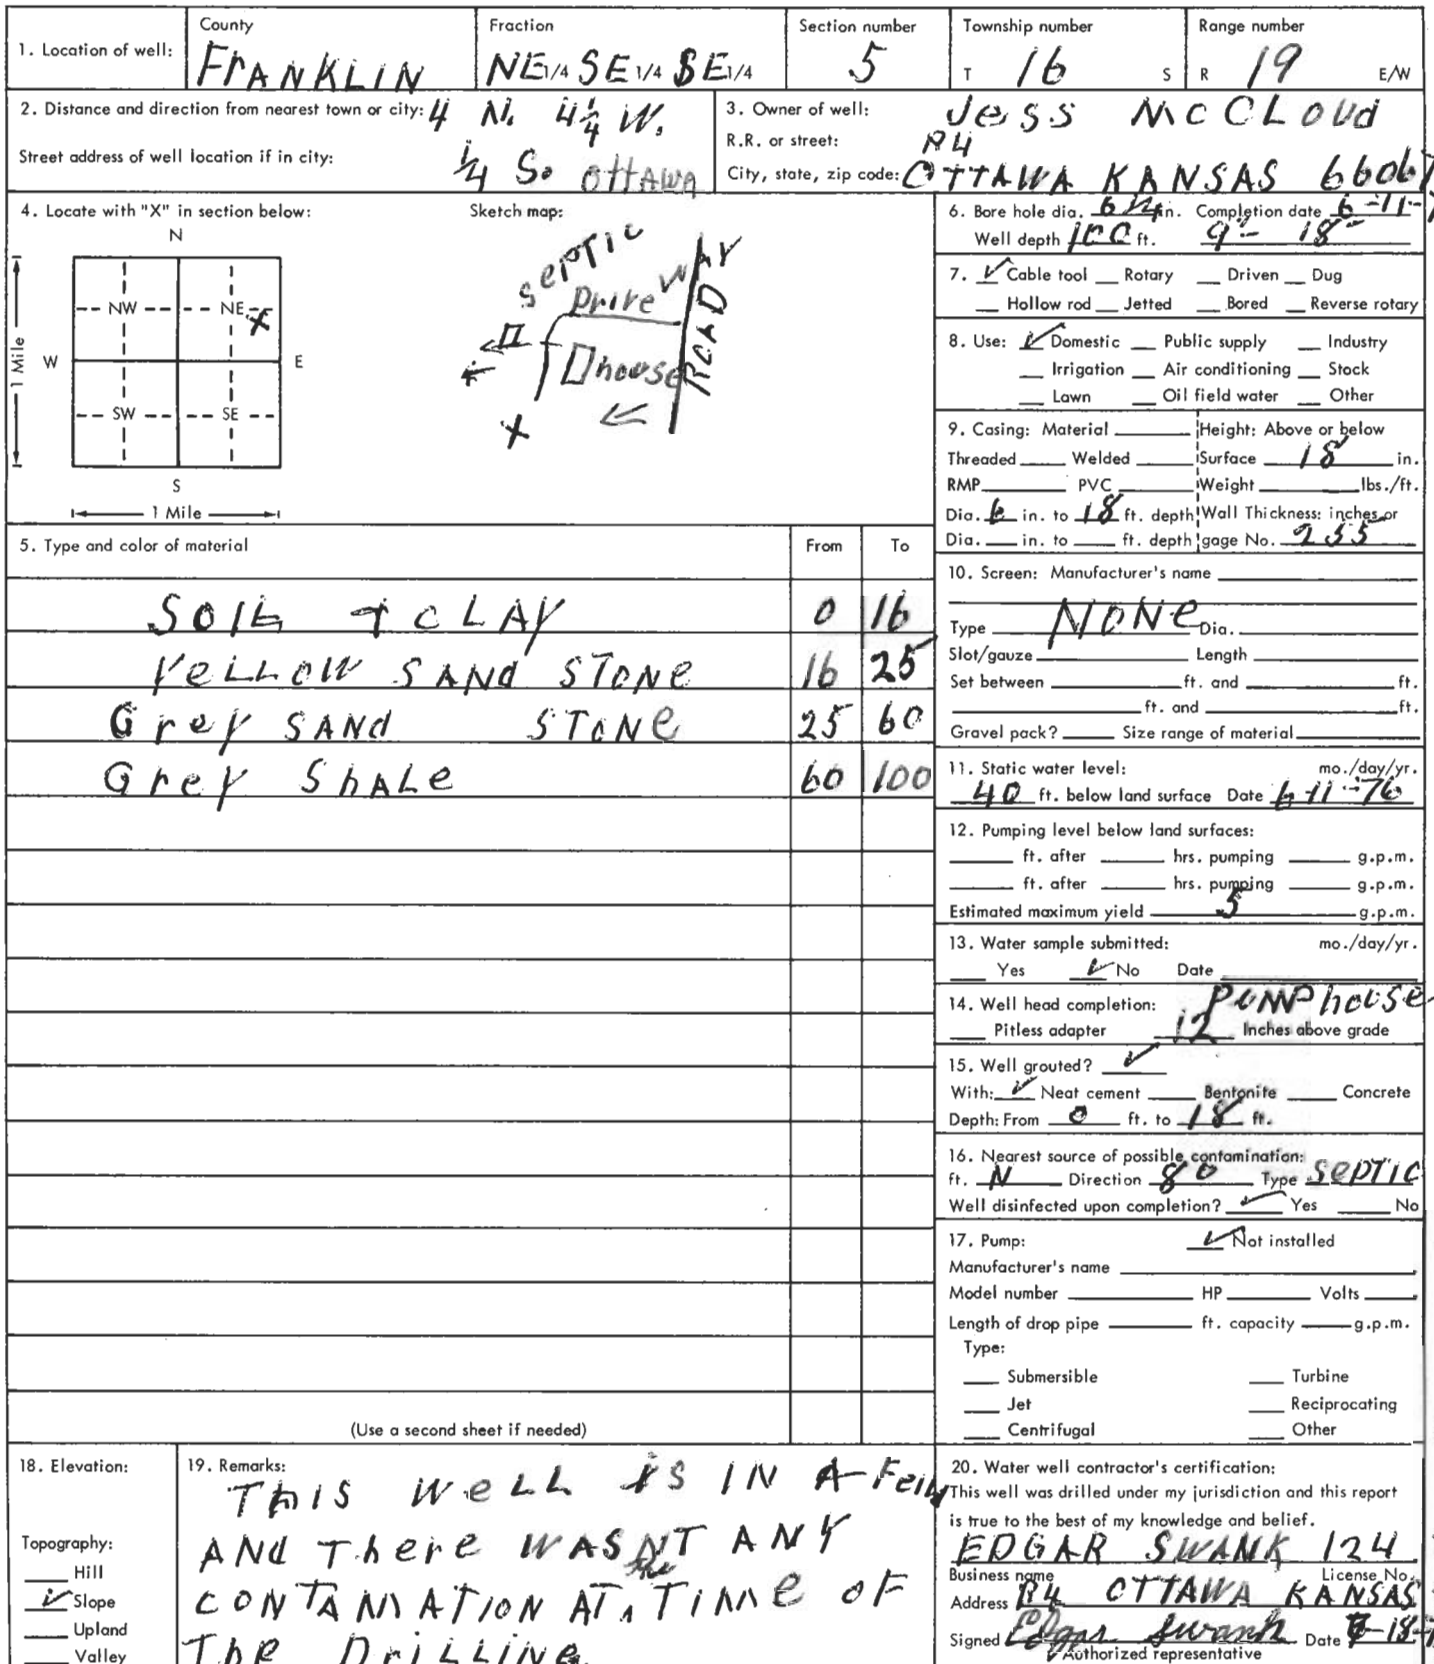 1. Location of well: County FRANKLIN Fraction NE 1/4 SE 1/4 SE 1/4 Section number 5 Township number T 16 S Range number R 19 E/W
2. Distance and direction from nearest town or city: 4 N. 4 1/4 W.
Street address of well location if in city: 1/4 So Ottawa
3. Owner of well: Jess McCloud
R.R. or street: R4
City, state, zip code: OTTAWA KANSAS 66067
4. Locate with "X" in section below:
N
NW NE X
W E
SW SE
S
1 Mile
1 Mile
Sketch map:
septic
Drive WAY
ROAD
house
X
5. Type and color of material From To
SOIL + CLAY 0 16
YELLOW SAND STONE 16 25
Grey SAND STONE 25 60
Grey ShALE 60 100
(Use a second sheet if needed)
6. Bore hole dia. 6 1/4 in. Completion date 6-11-7
Well depth 100 ft. 9- 18-
7. ✓ Cable tool __ Rotary __ Driven __ Dug
__ Hollow rod __ Jetted __ Bored __ Reverse rotary
8. Use: ✓ Domestic __ Public supply __ Industry
__ Irrigation __ Air conditioning __ Stock
__ Lawn __ Oil field water __ Other
9. Casing: Material ____ Height: Above or below
Threaded ____ Welded ____ Surface 18 in.
RMP ____ PVC ____ Weight ____ lbs./ft.
Dia. 6 in. to 18 ft. depth Wall Thickness: inches or
Dia. __ in. to __ ft. depth gage No. 255
10. Screen: Manufacturer's name ____
Type NONE Dia. ____
Slot/gauze ____ Length ____
Set between ____ ft. and ____ ft.
____ ft. and ____ ft.
Gravel pack? ____ Size range of material ____
11. Static water level: mo./day/yr.
40 ft. below land surface Date 6-11-76
12. Pumping level below land surfaces:
____ ft. after ____ hrs. pumping ____ g.p.m.
____ ft. after ____ hrs. pumping ____ g.p.m.
Estimated maximum yield 5 g.p.m.
13. Water sample submitted: mo./day/yr.
__ Yes ✓ No Date ____
14. Well head completion: PUMP house
__ Pitless adapter 12 Inches above grade
15. Well grouted? ✓
With: ✓ Neat cement __ Bentonite __ Concrete
Depth: From 0 ft. to 18 ft.
16. Nearest source of possible contamination:
ft. N Direction 80 Type SEPTIC
Well disinfected upon completion? ✓ Yes __ No
17. Pump: ✓ Not installed
Manufacturer's name ____
Model number ____ HP ____ Volts ____
Length of drop pipe ____ ft. capacity ____ g.p.m.
Type:
__ Submersible __ Turbine
__ Jet __ Reciprocating
__ Centrifugal __ Other
18. Elevation:
Topography:
__ Hill
✓ Slope
__ Upland
__ Valley
19. Remarks:
This WELL is IN A Feild
AND There WASNT ANY
CONTAMATION AT the TIME OF
The DriLLING
20. Water well contractor's certification:
This well was drilled under my jurisdiction and this report
is true to the best of my knowledge and belief.
EDGAR SWANK 124
Business name License No.
Address R4 OTTAWA KANSAS
Signed Edgar Swank Date -18-
Authorized representative